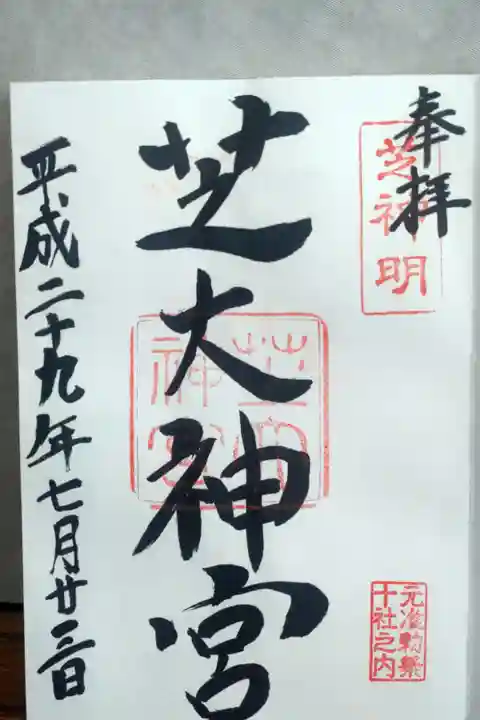 奉拝
芝神明
芝大神宮
元准勅祭
十社之内
平成二十九年七月廿三日